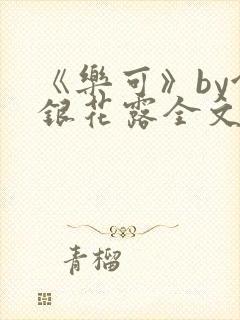 《樂可》by
銀花露全文
青榴